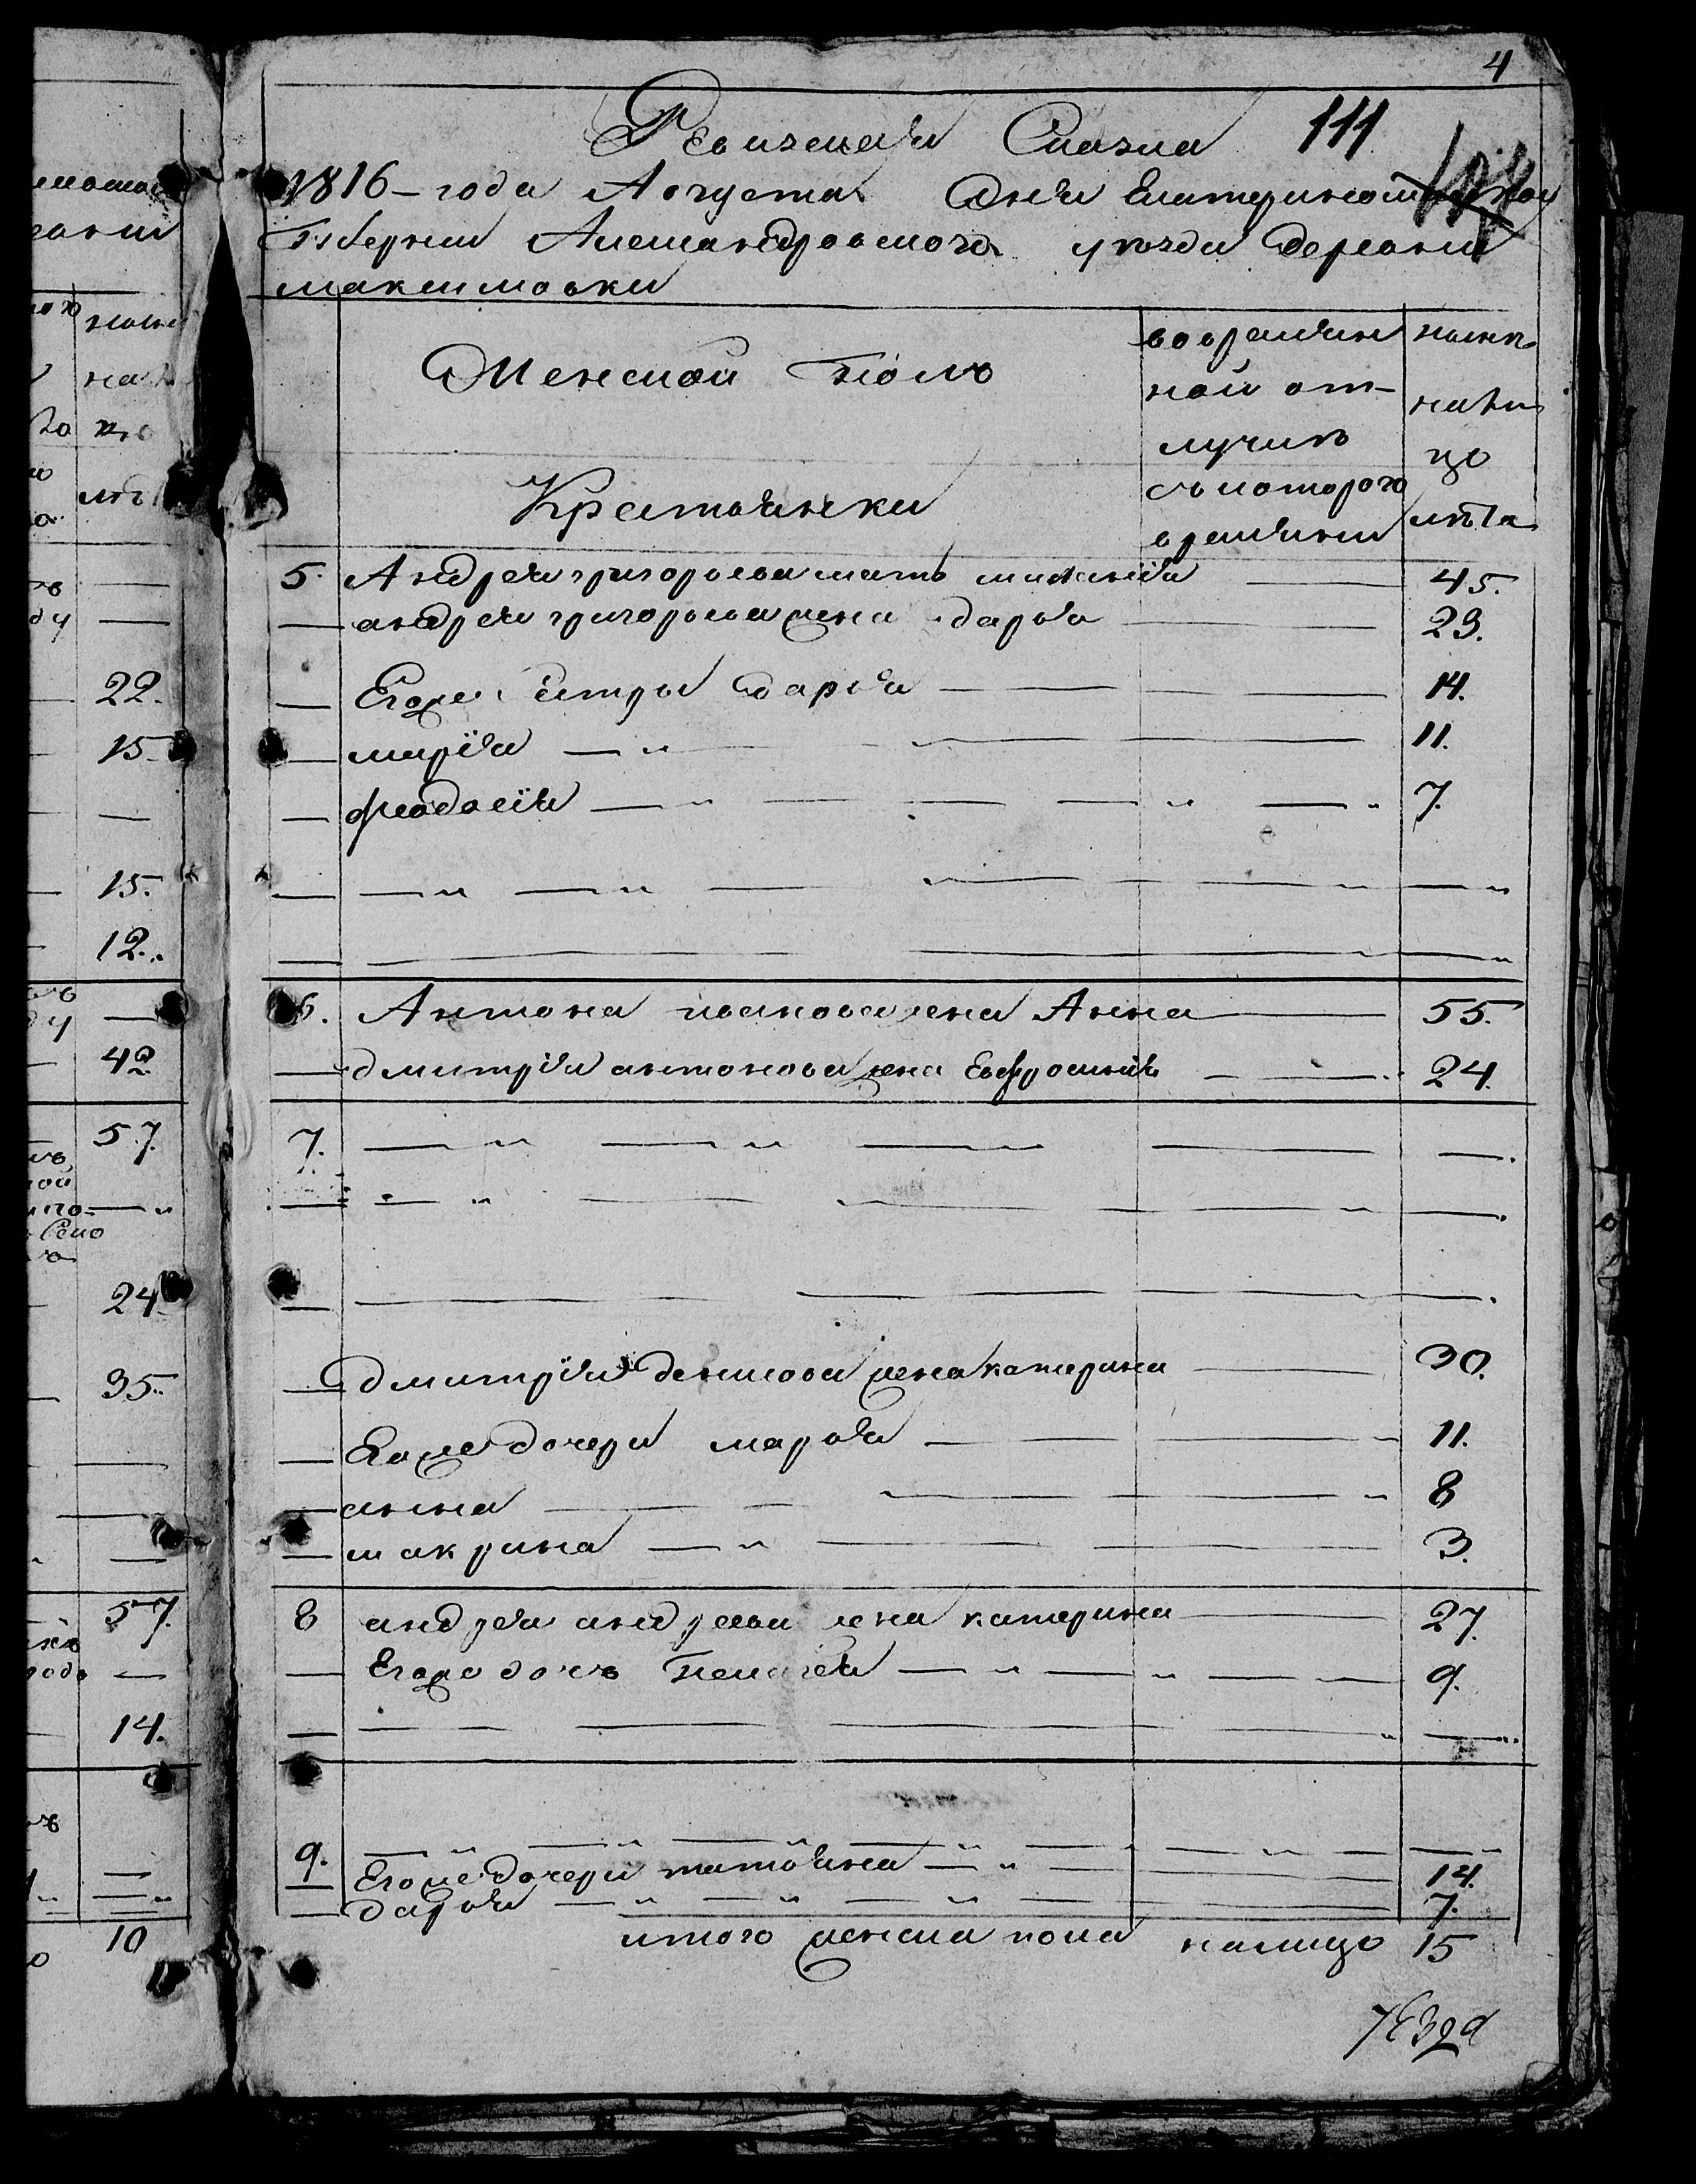 4
Ревизская Сказка 111
1816 – года Августа дня Екатеринославской
Губернии Александровского уезда деревни
максимовки
Женской полъ
Крестьянки
во времян
ной от-
лучкѣ
съ которого
времяни
нынѣ
на ли
цо
лѣта
5. Андрея григорьева мать 45.
— андрея григорьева жена дарья — 29.
— Егоже сестры дарья — 14.
— марiя — 11.
— феодосiя — 7.
6. Антона иванова жена Анна — 55.
— дмитрiя антонова жена Евфросинiя — 24.
7.
— дмитрiя денисова жена катерина — 30.
— Егоже дочери марья — 11.
— анна — 8
— макрина — 3.
8 андрея андреева жена катерина — 27.
— Егоже дочь Пелагея — 9.
9.
— Егоже дочери татьяна — 14.
— дарья — 7.
итого женска пола налицо 15
22.
15
15.
12.
42
57.
24
35.
57.
14.
10